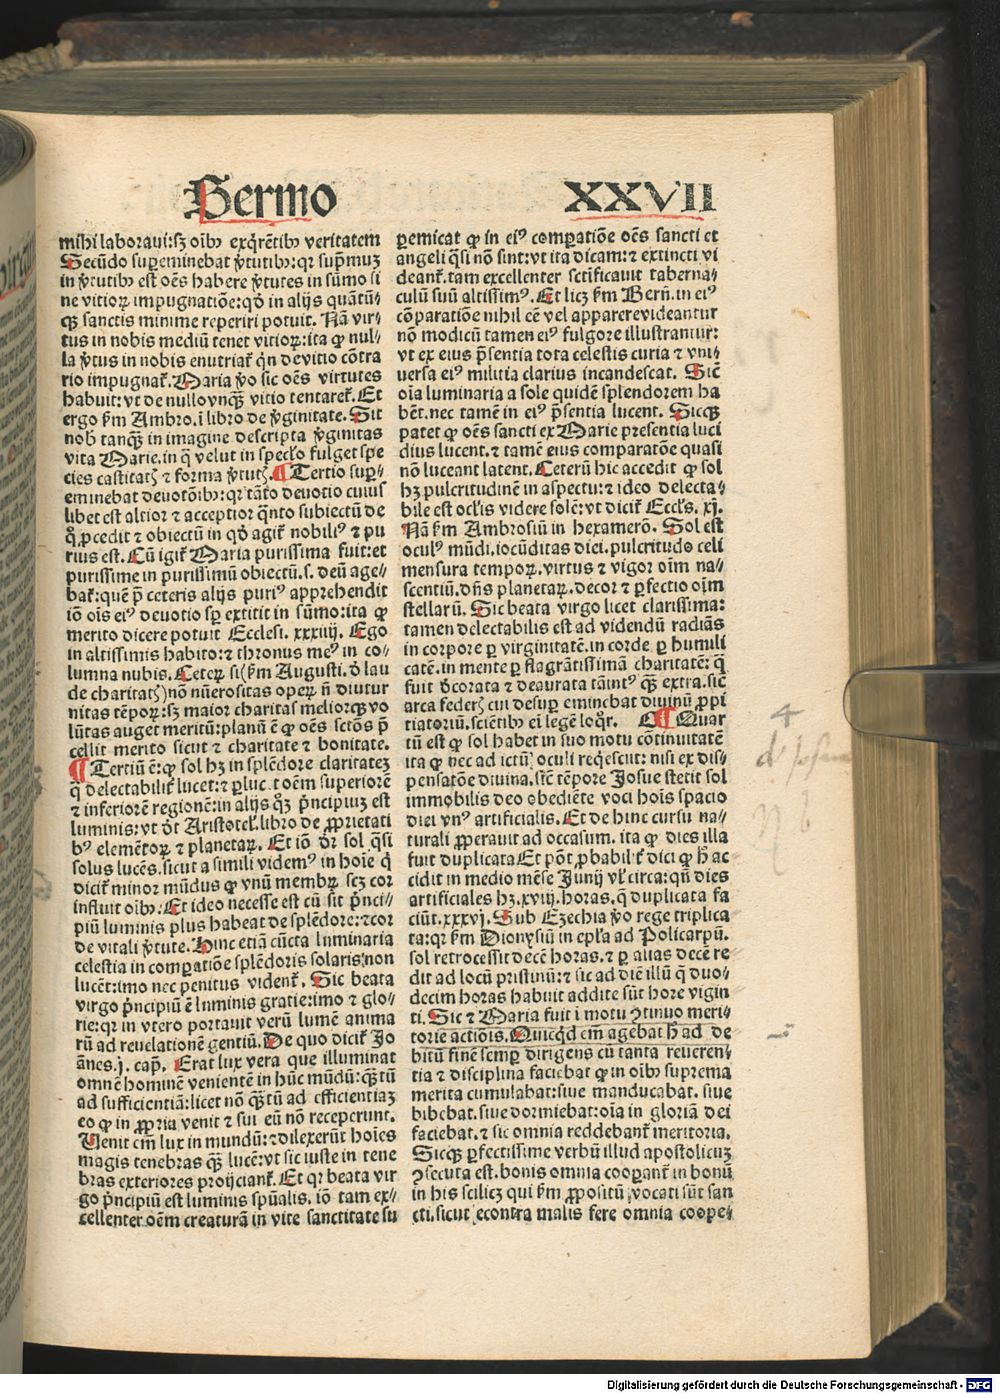 Sermo XXVII
mihi laboraui:sꝫ oĩbꝰ exqͥrẽtibꝰ veritatem
Secũdo supeminebat v̾tutibꝰ:qꝛ sup̃muꝫ
in v̾tutibꝰ est oẽs habere v̾tutes in sũmo si
ne vitioꝝ impugnatiõe:qd̾ in alijs quãtũ//
cꝗꝫ sanctis minime reperiri potuit. Nã vir//
tus in nobis mediũ tenet vitioꝝ:ita ꝙ nul//
la v̾tus in nobis enutriat̃ qͥn de vitio cõtra
rio impugnat̃. Maria v̾o sic oẽs virtutes
habuit:vt de nullo vnꝗꝫ vitio tentaret̃. Et
ergo ẜm Ambro.ĩ libro de v̾ginitate. Sit
nob̾ tanꝗꝫ in imagine descripta v̾ginitas
vita Marie.in q̃ velut in spec̾lo fulget spe
cies castitatꝭ ⁊ forma v̾tutꝭ. ¶ Tertio sup//
eminebat deuotõibꝰ:qꝛ tãto deuotio cuius
libet est altior ⁊ acceptior q̃nto subiectũ de
q̊ ꝓcedit ⁊ obiectũ in qd̾ agit̃ nobiliꝰ ⁊ pu
rius est. Cũ igit̃ Maria purissima fuit:et
purissime in purissimũ obiectũ.s. deũ age//
bat̃:quẽ p̃ ceteris alijs puriꝰ apprehendit
iõ oĩs eiꝰ deuotio sup extitit in sũmo:ita ꝙ
merito dicere potuit Ecclesi. xxxiiij. Ego
in altissimis habito:⁊ thronus meꝰ in co//
lumna nubis. Ceteꝝ si(ẜm Augusti. d̾ lau
de charitatꝭ)nõ nũerositas opeꝝ ñ diutur
nitas tẽpoꝝ:sꝫ maior charitas meliorcꝗꝫ vo
lũtas auget meritũ:planũ ẽ ꝙ oẽs sctõs p̃
cellit merito sicut ⁊ charitate ⁊ bonitate.
¶ Tertiũ ẽ:ꝙ sol hꝫ in splẽdore claritateꝫ
q̃ delectabilit̾ lucet:⁊ ꝑluc̾t oẽm superiorẽ
⁊ inferiorẽ regionẽ:in alijs q̃ꝫ pͥncipiuꝫ est
luminis:vt d̾t Aristotel̾.libro de ꝓprietati
bꝰ elemẽtoꝝ ⁊ planetaꝝ. Et iõ dr̃ sol qͣsi
solus lucẽs.sicut a simili videmꝰ in hoĩe qͥ
dicit̃ minor mũdus ꝙ vnũ membꝝ scꝫ cor
influit oĩbꝰ. Et ideo necesse est cũ sit pͥnci//
piũ luminis plus habeat de splẽdore:⁊ cor
de vitali v̾tute. Hinc etiã cũcta luminaria
celestia in compatiõe splẽdoris solaris:non
lucẽt:imo nec penitus vident̃. Sic beata
virgo pͥncipiũ ẽ luminis gratie:imo ⁊ glo//
rie:qꝛ in vtero portauit verũ lumẽ anima
rũ ad reuelationẽ gentiũ. De quo dicit̃ Jo
ãnes.j. cap̃. Erat lux vera que illuminat
omnẽ hominẽ venientẽ in hũc mũdũ:ꝗꝫtũ
ad sufficientiã:licet nõ ꝗꝫtũ ad efficientiaꝫ
eo ꝙ in ꝓpria venit ⁊ sui eũ nõ receperunt.
Uenit em̃ lux in mundũ:⁊ dilexerũt hoĩes
magis tenebras ꝗꝫ lucẽ:vt sic iuste in tene
bras exteriores proijciant̃. Et qꝛ beata vir
go pͥncipiũ est luminis sp̃ualis. iõ tam ex//
cellenter oẽm creaturã in vite sanctitate su
pemicat ꝙ in eiꝰ compatiõe oẽs sancti et
angeli qͣsi nõ sint:vt ita dicam:⁊ extincti vi
deant̃.tam excellenter sctificauit taberna//
culũ suũ altissimꝰ. Et licꝫ ẜm Bern̾.in eiꝰ
cõparatiõe nihil cẽ vel apparere videantur
nõ modicũ tamen eiꝰ fulgore illustrantur:
vt ex eius p̃sentia tota celestis curia ⁊ vni//
uersa eiꝰ militia clarius incandescat. Sic̃
oĩa luminaria a sole quidẽ splendorem ha
bẽt.nec tamẽ in eiꝰ p̃sentia lucent. Siccꝗꝫ
patet ꝙ oẽs sancti ex Marie presentia luci
dius lucent.⁊ tamẽ eius comparatõe quasi
nõ luceant latent. Ceterũ hic accedit ꝙ sol
hꝫ pulcritudinẽ in aspectu:⁊ ideo delecta//
bile est oc̾lis videre solẽ:vt dicit̃ Eccl̾s. xj.
Nã ẜm Ambrosiũ in hexamerõ. Sol est
oculꝰ mũdi.iocũditas diei.pulcritudo celi
mensura tempoꝝ.virtus ⁊ vigor oĩm na//
scentiũ.dñs planetaꝝ.decor ⁊ ꝑfectio oĩm
stellarũ. Sic beata virgo licet clarissima:
tamen delectabilis est ad videndũ radiãs
in corpore ꝑ virginitatẽ.in corde ꝑ humili
catẽ.in mente ꝑ flagrãtissimã charitatẽ:q̃
fuit d̾corata ⁊ deaurata tã intꝰ ꝗꝫ extra.sic̃
arca federꝭ cui desup eminebat diuinũ ꝓpi
tiatoriũ.sciẽtibꝰ em̃ legẽ loq̃r. ¶ Quar
tũ est ꝙ sol habet in suo motu cõtinuitatẽ
ita ꝙ nec ad ictũ oculi reqͥescit:nisi ex dis//
pensatõe diuina.sic̃ tẽpore Josue stetit sol
immobilis deo obediẽte voci hoĩs spacio
diei vnꝰ artificialis. Et de hinc cursu na//
turali ꝓperauit ad occasum. ita ꝙ dies illa
fuit duplicata Et põt ꝓbabilit̾ dici ꝙ h̾ ac
cidit in medio mẽse Junij vl̾ circa:qñ dies
artificiales hꝫ.xviij.horas.q̃ duplicata fa
ciũt.xxxvj. Sub Ezechia v̾o rege triplica
ta:qꝛ ẜm Dionysiũ in epl̾a ad Policarpũ.
sol retrocessit decẽ horas.⁊ ꝑ alias decẽ re
dit ad locũ pristinũ:⁊ sic ad diẽ illũ q̃ duo//
decim horas habuit addite sũt hore vigin
ti. Sic ⁊ Maria fuit ĩ motu ꝯtinuo meri//
torie actiõis. Quicqͥd em̃ agebat h̾ ad de//
bitũ finẽ semꝑ dirigens cũ tanta reueren//
tia ⁊ disciplina faciebat ꝙ in oĩbꝰ suprema
merita cumulabat:siue manducabat. siue
bibebat.siue dormiebat:oĩa in gloriã dei
faciebat.⁊ sic omnia reddebant̃ meritoria.
Siccꝗꝫ ꝑfectissime verbũ illud apostolicuꝫ
ꝯsecuta est.bonis omnia coopant̃ in bonũ
in his scilicꝫ qui ẜm ꝓpositũ vocati sũt san
cti.sicut econtra malis fere omnia coope//
4
Digitalisierung gefördert durch die Deutsche Forschungsgemeinschaft - DFG